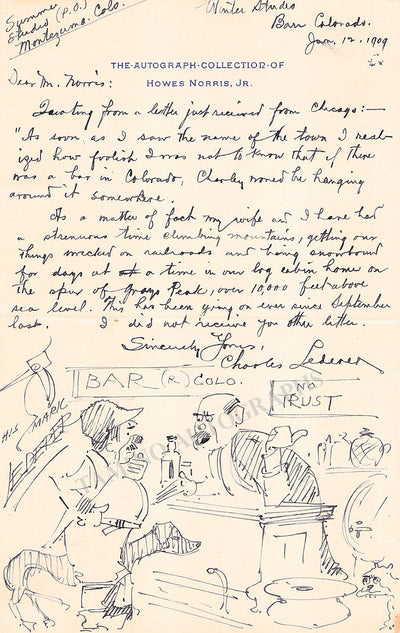 Summer
Studio (P.O.)
Montezuma. Colo.
Winter Studio
Barr Colorado.
Jan. 12, 1909
THE·AUTOGRAPH·COLLECTION·OF
HOWES NORRIS, JR.
Dear Mr. Norris:
Quoting from a letter just received from Chicago:—
"As soon as I saw the name of the town I real-
ized how foolish I was not to know that if there
was a bar in Colorado, Charley would be hanging
around it somewhere.
As a matter of fact my wife and I have had
a strenuous time climbing mountains, getting our
things wrecked on railroads and being snowbound
for days at a time in our log cabin home on
the spur of Grays Peak, over 10,000 feet above
sea level. This has been going on ever since September
last. I did not receive you other letter.
Sincerely Yours,
Charles Lederer
BAR (R) COLO.
NO
TRUST
HIS MARK
LEDERER